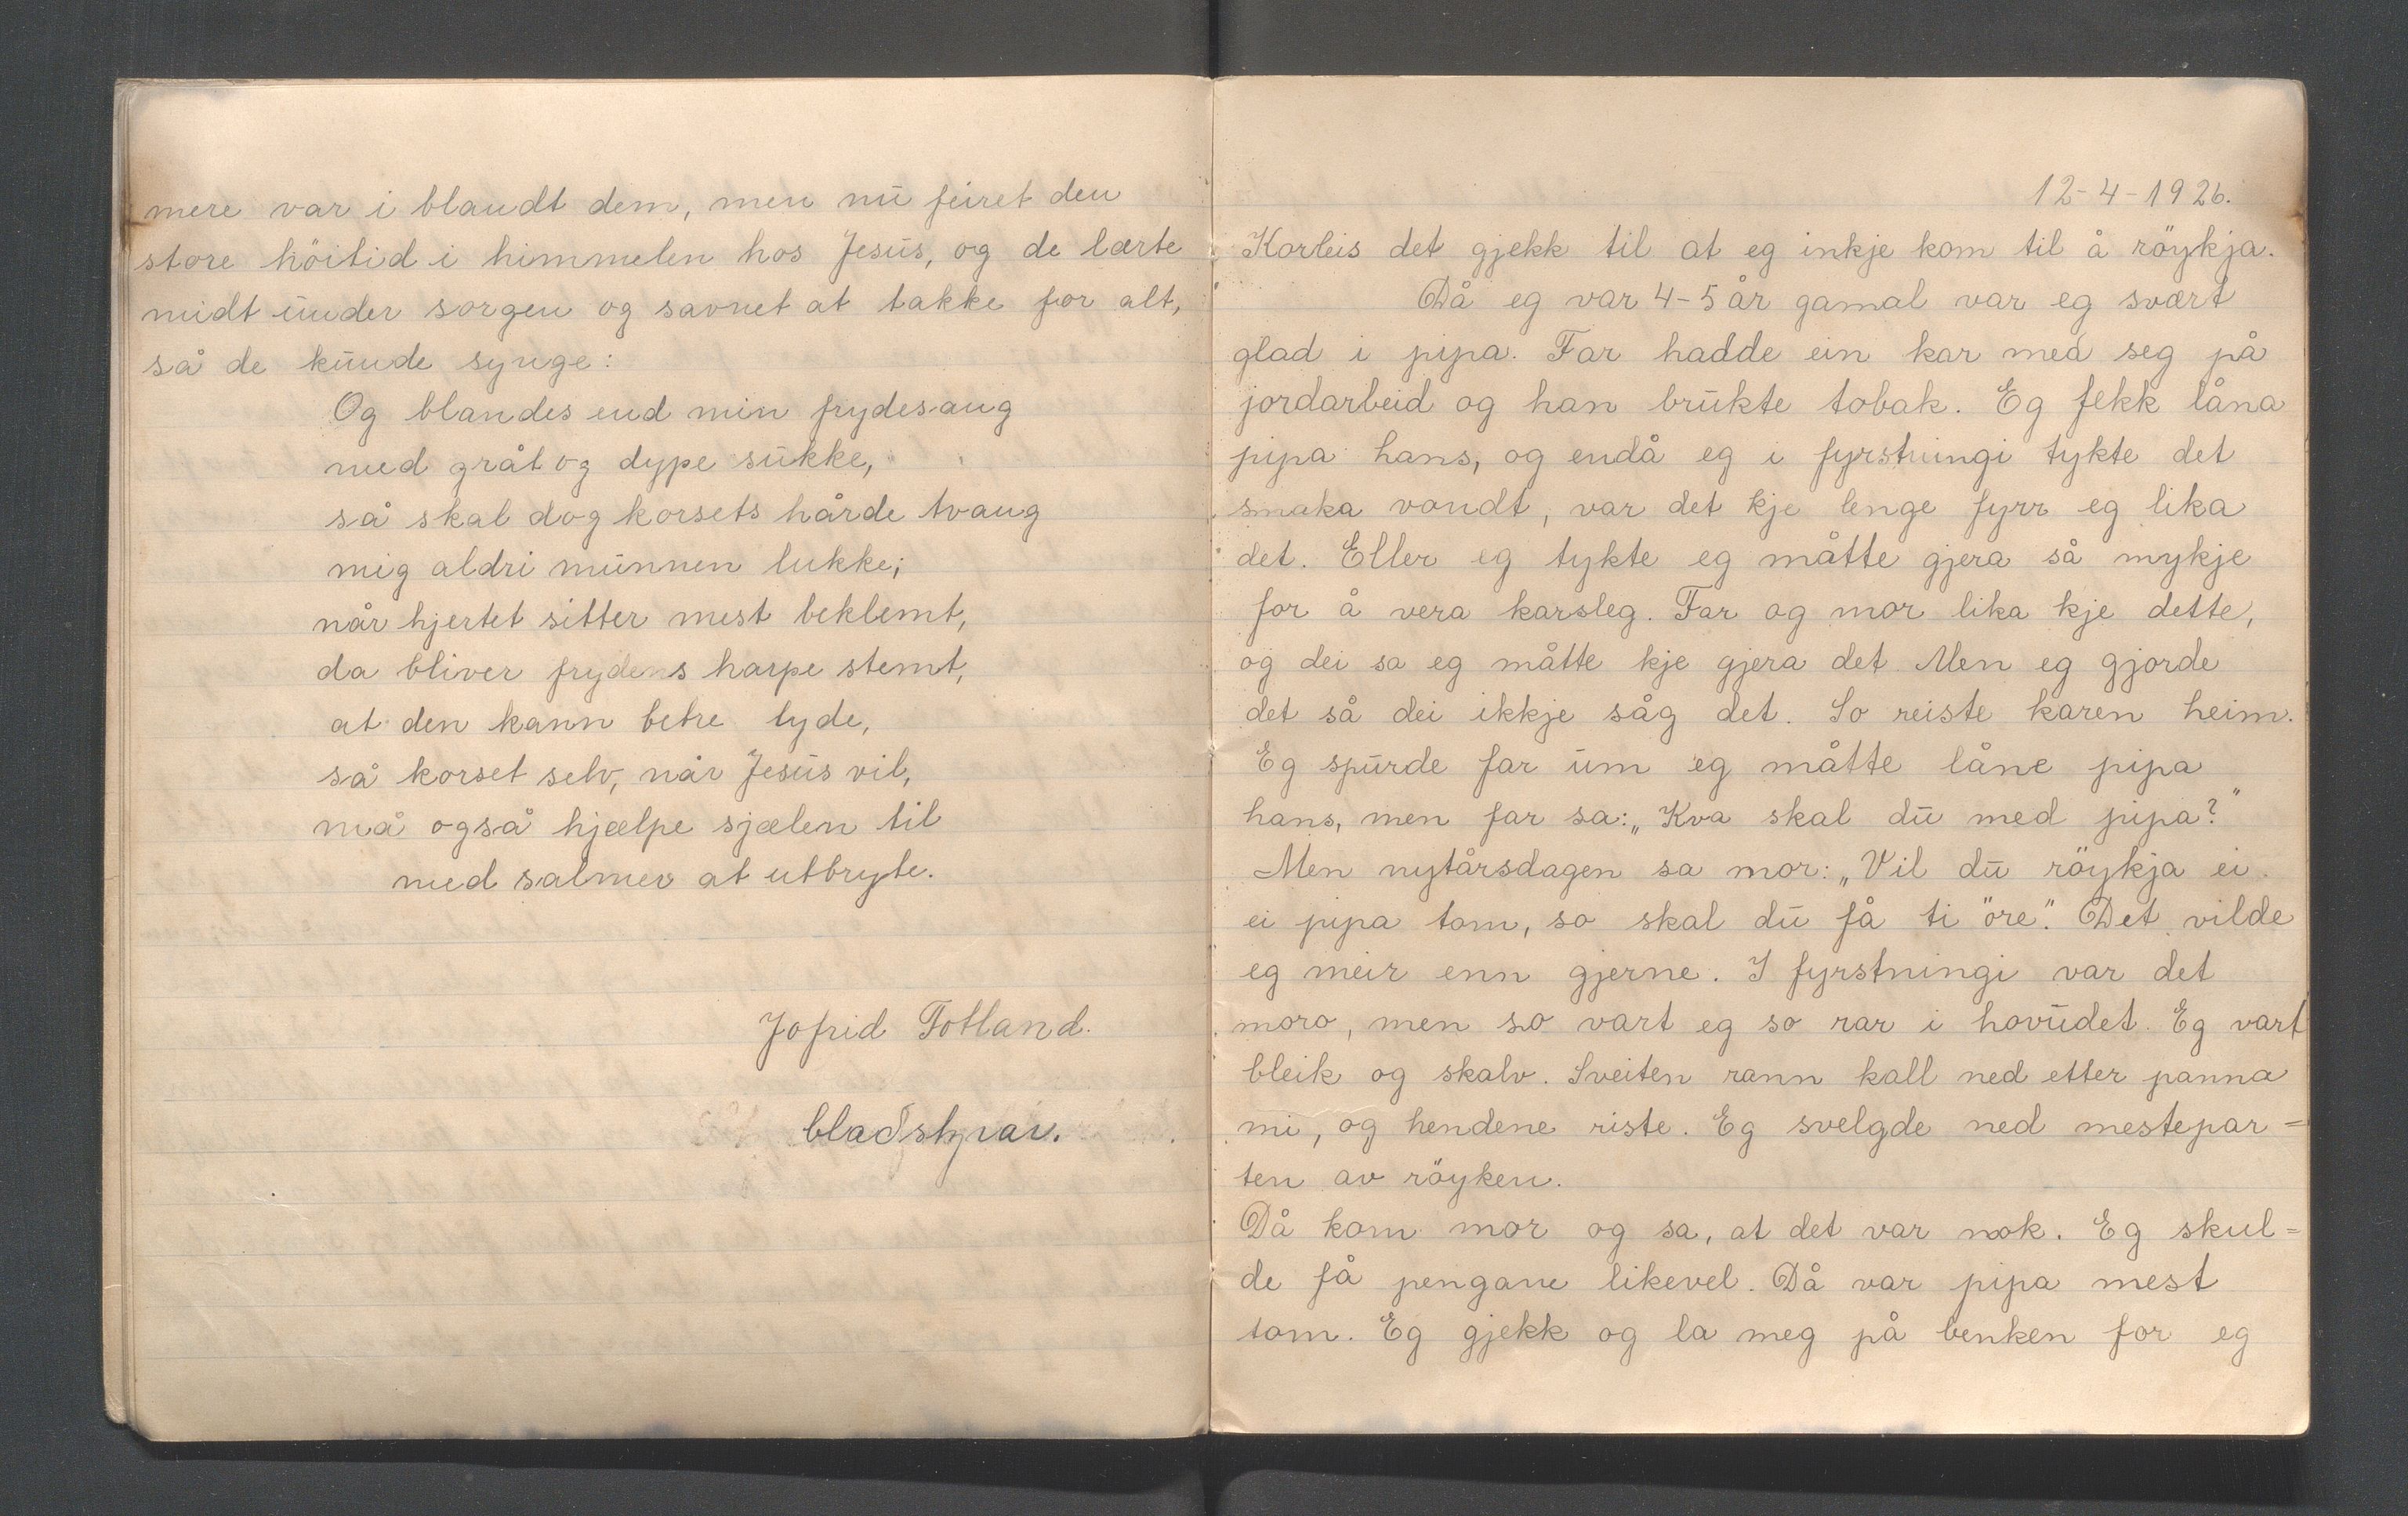 mere var i blandt dem, men nū feiret den
store höitid i himmelen hos Jesūs, og de lærte
midt ūnder sorgen og savnet at takke for alt,
så de kūnde synge:
Og blandes end min frydesang
med gråt og dype sūkke,
så skal dog korsets hårde tvang
mig aldri mūnnen lukke;
når hjertet sitter mest beklemt,
da bliver frydens harpe stemt,
at den kann betre lyde,
så korset selv, når Jesūs vil,
må også hjælpe sjælen til
med salmer at utbryte.
Jofrid Totland.
bladstyrar.
12-4-1926.
Korleis det gjekk til at eg inkje kom til å röykja.
Då eg var 4-5 år gamal var eg svært
glad i pipa. Far hadde ein kar med seg på
jordarbeid og han brūkte tobak. Eg fekk låna
pipa hans, og endå eg i fyrstningi tykte det
smaka vondt, var det kje lenge fyrr eg lika
det. Eller eg tykte eg måtte gjera så mykje
for å vera karsleg. Far og mor lika kje dette,
og dei sa eg måtte kje gjera det. Men eg gjorde
det så dei ikkje såg det. So reiste karen heim.
Eg spūrde far ūm eg måtte låne pipa
hans, men far sa: „Kva skal dū med pipa?"
Men nytårsdagen sa mor: „Vil dū röykja ei
ei pipa tom, so skal dū få ti öre". Det vilde
eg meir enn gjerne. I fyrstningi var det
moro, men so vart eg so rar i hovūdet. Eg vart
bleik og skalv. Sveiten rann kall ned etter panna
mi, og hendene riste. Eg svelgde ned mestepar=
ten av röyken.
Då kom mor og sa, at det var nok. Eg skul=
de få pengane likevel. Då var pipa mest
tom. Eg gjekk og la meg på benken for eg